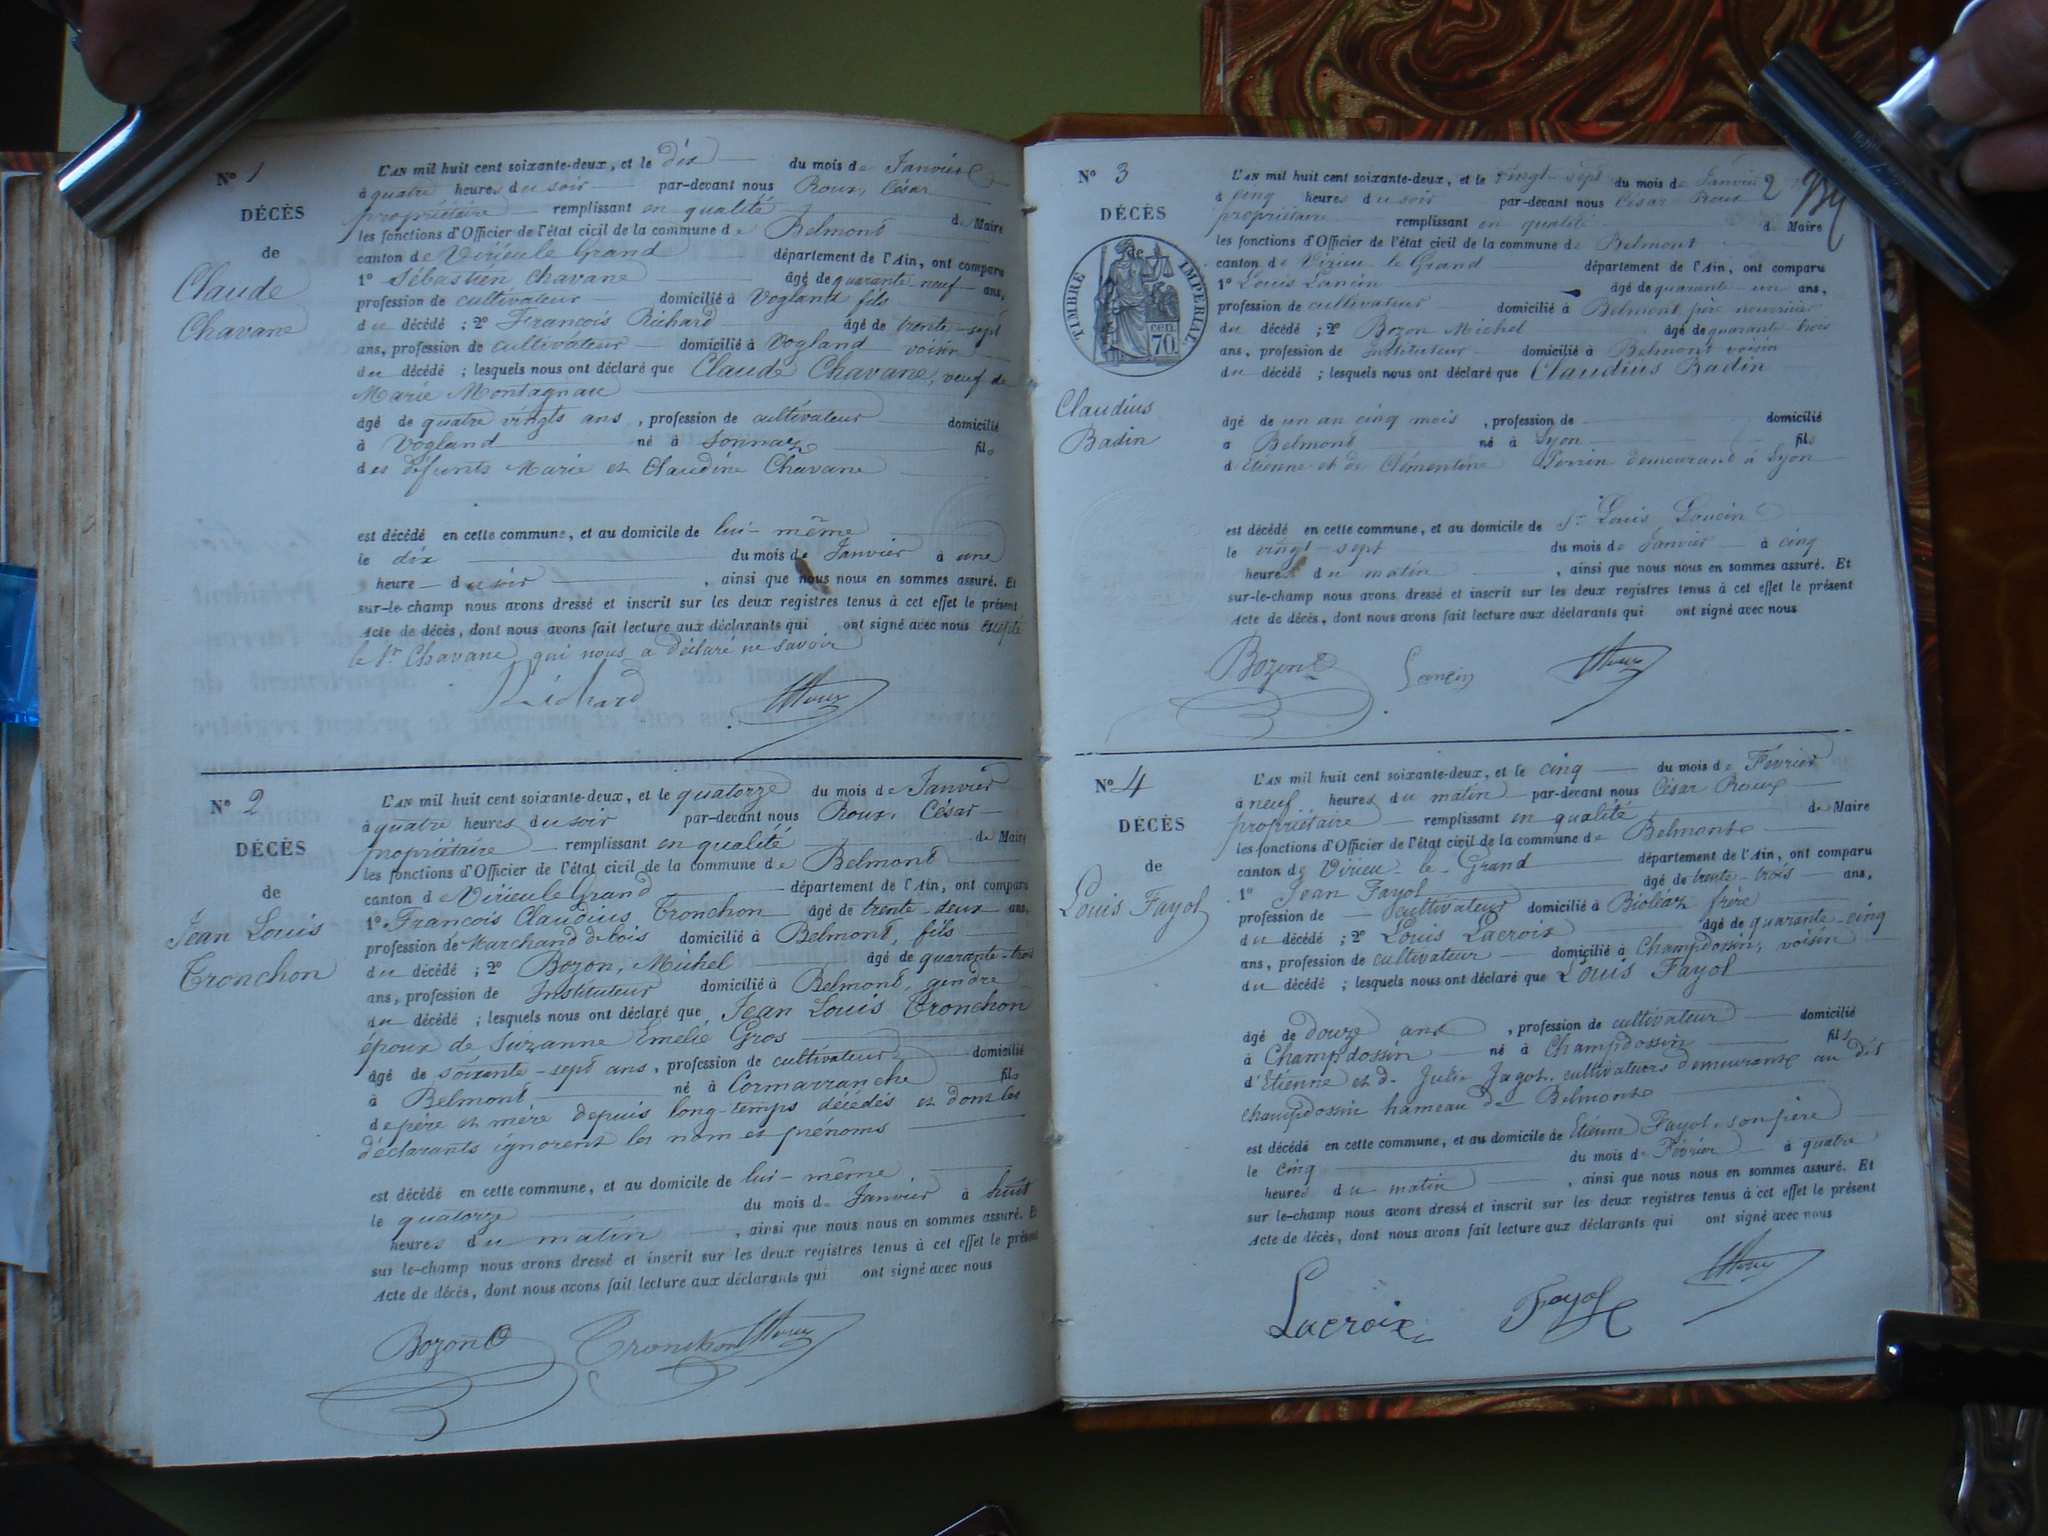 N° 1
DÉCÈS
de
Claude
Chavane
L'AN mil huit cent soixante-deux, et le dix du mois de Janvier
à quatre heures du soir par-devant nous Roux, César
propriétaire remplissant en qualité de Maire
les fonctions d'Officier de l'état civil de la commune de Belmont
canton de Virieu le Grand département de l'Ain, ont comparu
1° Sébastien Chavane âgé de quarante neuf ans,
profession de cultivateur domicilié à Vogland fils
du décédé ; 2° François Richard âgé de trente-sept
ans, profession de cultivateur domicilié à Vogland voisin
du décédé ; lesquels nous ont déclaré que Claude Chavane, veuf de
Marie Montagnau
âgé de quatre vingts ans, profession de cultivateur domicilié
à Vogland né à Sonnaz fils
des défunts Marie et Claudine Chavane
est décédé en cette commune, et au domicile de lui-même
le dix du mois de Janvier à une
heure du soir, ainsi que nous nous en sommes assuré. Et
sur-le-champ nous avons dressé et inscrit sur les deux registres tenus à cet effet le présent
Acte de décès, dont nous avons fait lecture aux déclarants qui ont signé avec nous excepté
le Sr Chavane qui nous a déclaré ne savoir
Richard Roux
N° 2
DÉCÈS
de
Jean Louis
Tronchon
L'AN mil huit cent soixante-deux, et le quatorze du mois de Janvier
à quatre heures du soir par-devant nous Roux, César
propriétaire remplissant en qualité de Maire
les fonctions d'Officier de l'état civil de la commune de Belmont
canton de Virieu le Grand département de l'Ain, ont comparu
1° François Claudius Tronchon âgé de trente-deux ans,
profession de Marchand de bois domicilié à Belmont, fils
du décédé ; 2° Bozon, Michel âgé de quarante-trois
ans, profession de Instituteur domicilié à Belmont, gendre
du décédé ; lesquels nous ont déclaré que Jean Louis Tronchon
époux de Suzanne Emélie Gros
âgé de soixante-sept ans, profession de cultivateur domicilié
à Belmont né à Cormarranche fils
de père et mère depuis long-temps décédés et dont les
déclarants ignorent les nom et prénoms
est décédé en cette commune, et au domicile de lui-même
le quatorze du mois de Janvier à huit
heures du matin, ainsi que nous nous en sommes assuré. Et
sur le-champ nous avons dressé et inscrit sur les deux registres tenus à cet effet le présent
Acte de décès, dont nous avons fait lecture aux déclarants qui ont signé avec nous
Bozon Tronchon Roux
N° 3
2
DÉCÈS
TIMBRE IMPERIAL
70 cen.
Claudius
Badin
L'AN mil huit cent soixante-deux, et le vingt-sept du mois de Janvier
à cinq heures du soir par-devant nous César Roux
propriétaire remplissant en qualité de Maire
les fonctions d'Officier de l'état civil de la commune de Belmont
canton de Virieu-le Grand département de l'Ain, ont comparu
1° Louis Lancin âgé de quarante-un ans,
profession de cultivateur domicilié à Belmont père nourricier
du décédé ; 2° Bozon Michel âgé de quarante trois
ans, profession de Instituteur domicilié à Belmont voisin
du décédé ; lesquels nous ont déclaré que Claudius Badin
âgé de un an cinq mois, profession de domicilié
a Belmont né à Lyon fils
d'Etienne et de Clémentine Perrin demeurant à Lyon
est décédé en cette commune, et au domicile de Sr Louis Lancin
le vingt-sept du mois de Janvier à cinq
heures du matin, ainsi que nous nous en sommes assuré. Et
sur-le-champ nous avons dressé et inscrit sur les deux registres tenus à cet effet le présent
Acte de décès, dont nous avons fait lecture aux déclarants qui ont signé avec nous
Bozon Lancin Roux
N° 4
DÉCÈS
de
Louis Fayol
L'AN mil huit cent soixante-deux, et le cinq du mois de Février
à neuf heures du matin par-devant nous César Roux
propriétaire remplissant en qualité de Maire
les fonctions d'Officier de l'état civil de la commune de Belmont
canton de Virieu-le-Grand département de l'Ain, ont comparu
1° Jean Fayol âgé de trente-trois ans,
profession de cultivateur domicilié à Bioléaz frère
du décédé ; 2° Louis Lacroix âgé de quarante-cinq
ans, profession de cultivateur domicilié à Champdossin, voisin
du décédé ; lesquels nous ont déclaré que Louis Fayol
âgé de douze ans, profession de cultivateur domicilié
à Champdossin né à Champdossin fils
d'Etienne et de Julie Jagot, cultivateurs demeurants au dit
champdossin hameau de Belmont
est décédé en cette commune, et au domicile de Etienne Fayol, son père
le cinq du mois de Février à quatre
heures du matin, ainsi que nous nous en sommes assuré. Et
sur le-champ nous avons dressé et inscrit sur les deux registres tenus à cet effet le présent
Acte de décès, dont nous avons fait lecture aux déclarants qui ont signé avec nous
Lacroix Fayol Roux